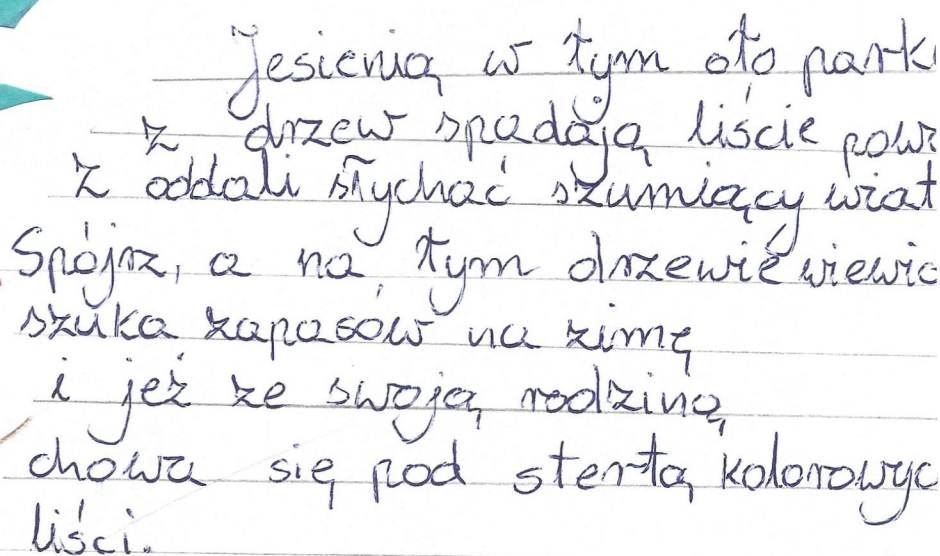 Jesienią w tym oto park
z drzew spadają liście pow
Z oddali słychać szumiący wiat
Spójrz, a na tym drzewie wiewió
szuka zapasów na zimę
i jeż ze swoją rodziną
chowa się pod stertą kolorowyc
liści.